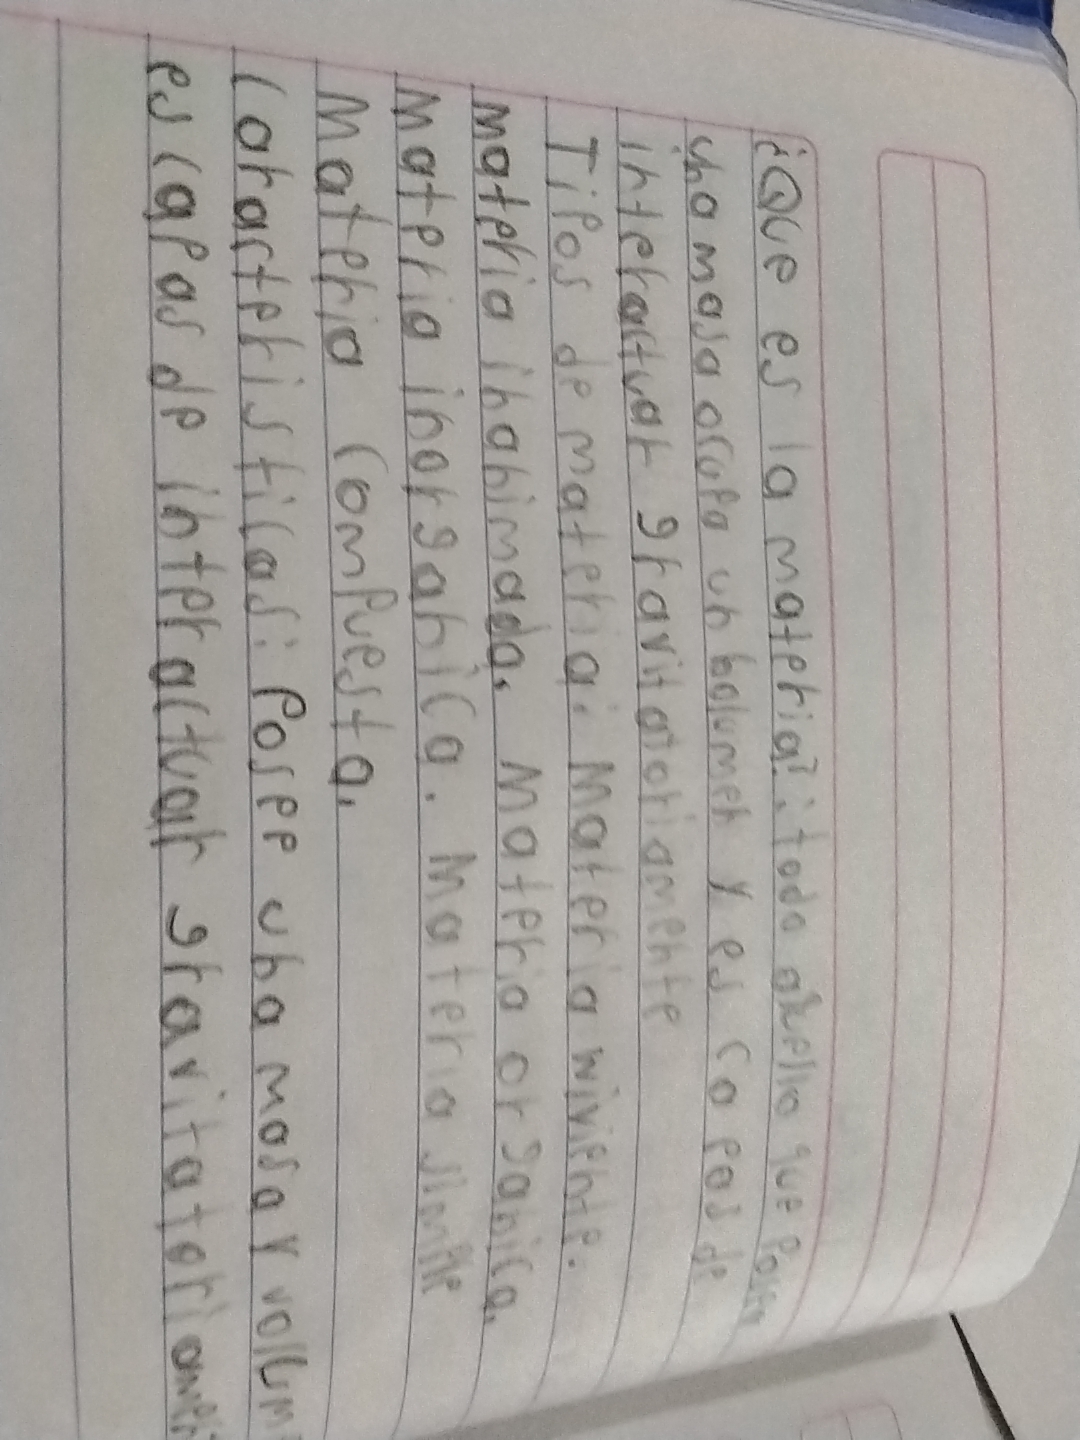 ¿Que es la materia?: todo aquello que posee
una masa ocupa un bolumen y es capas de
interactuar gravitatoriamente
Tipos de materia: Materia wiviente.
materia inanimada. Materia organica.
materia inorganica. Materia simple
Materia compuesta.
Caracteristicas: Posee una masa y volum
es capas de interactuar gravitatoriament